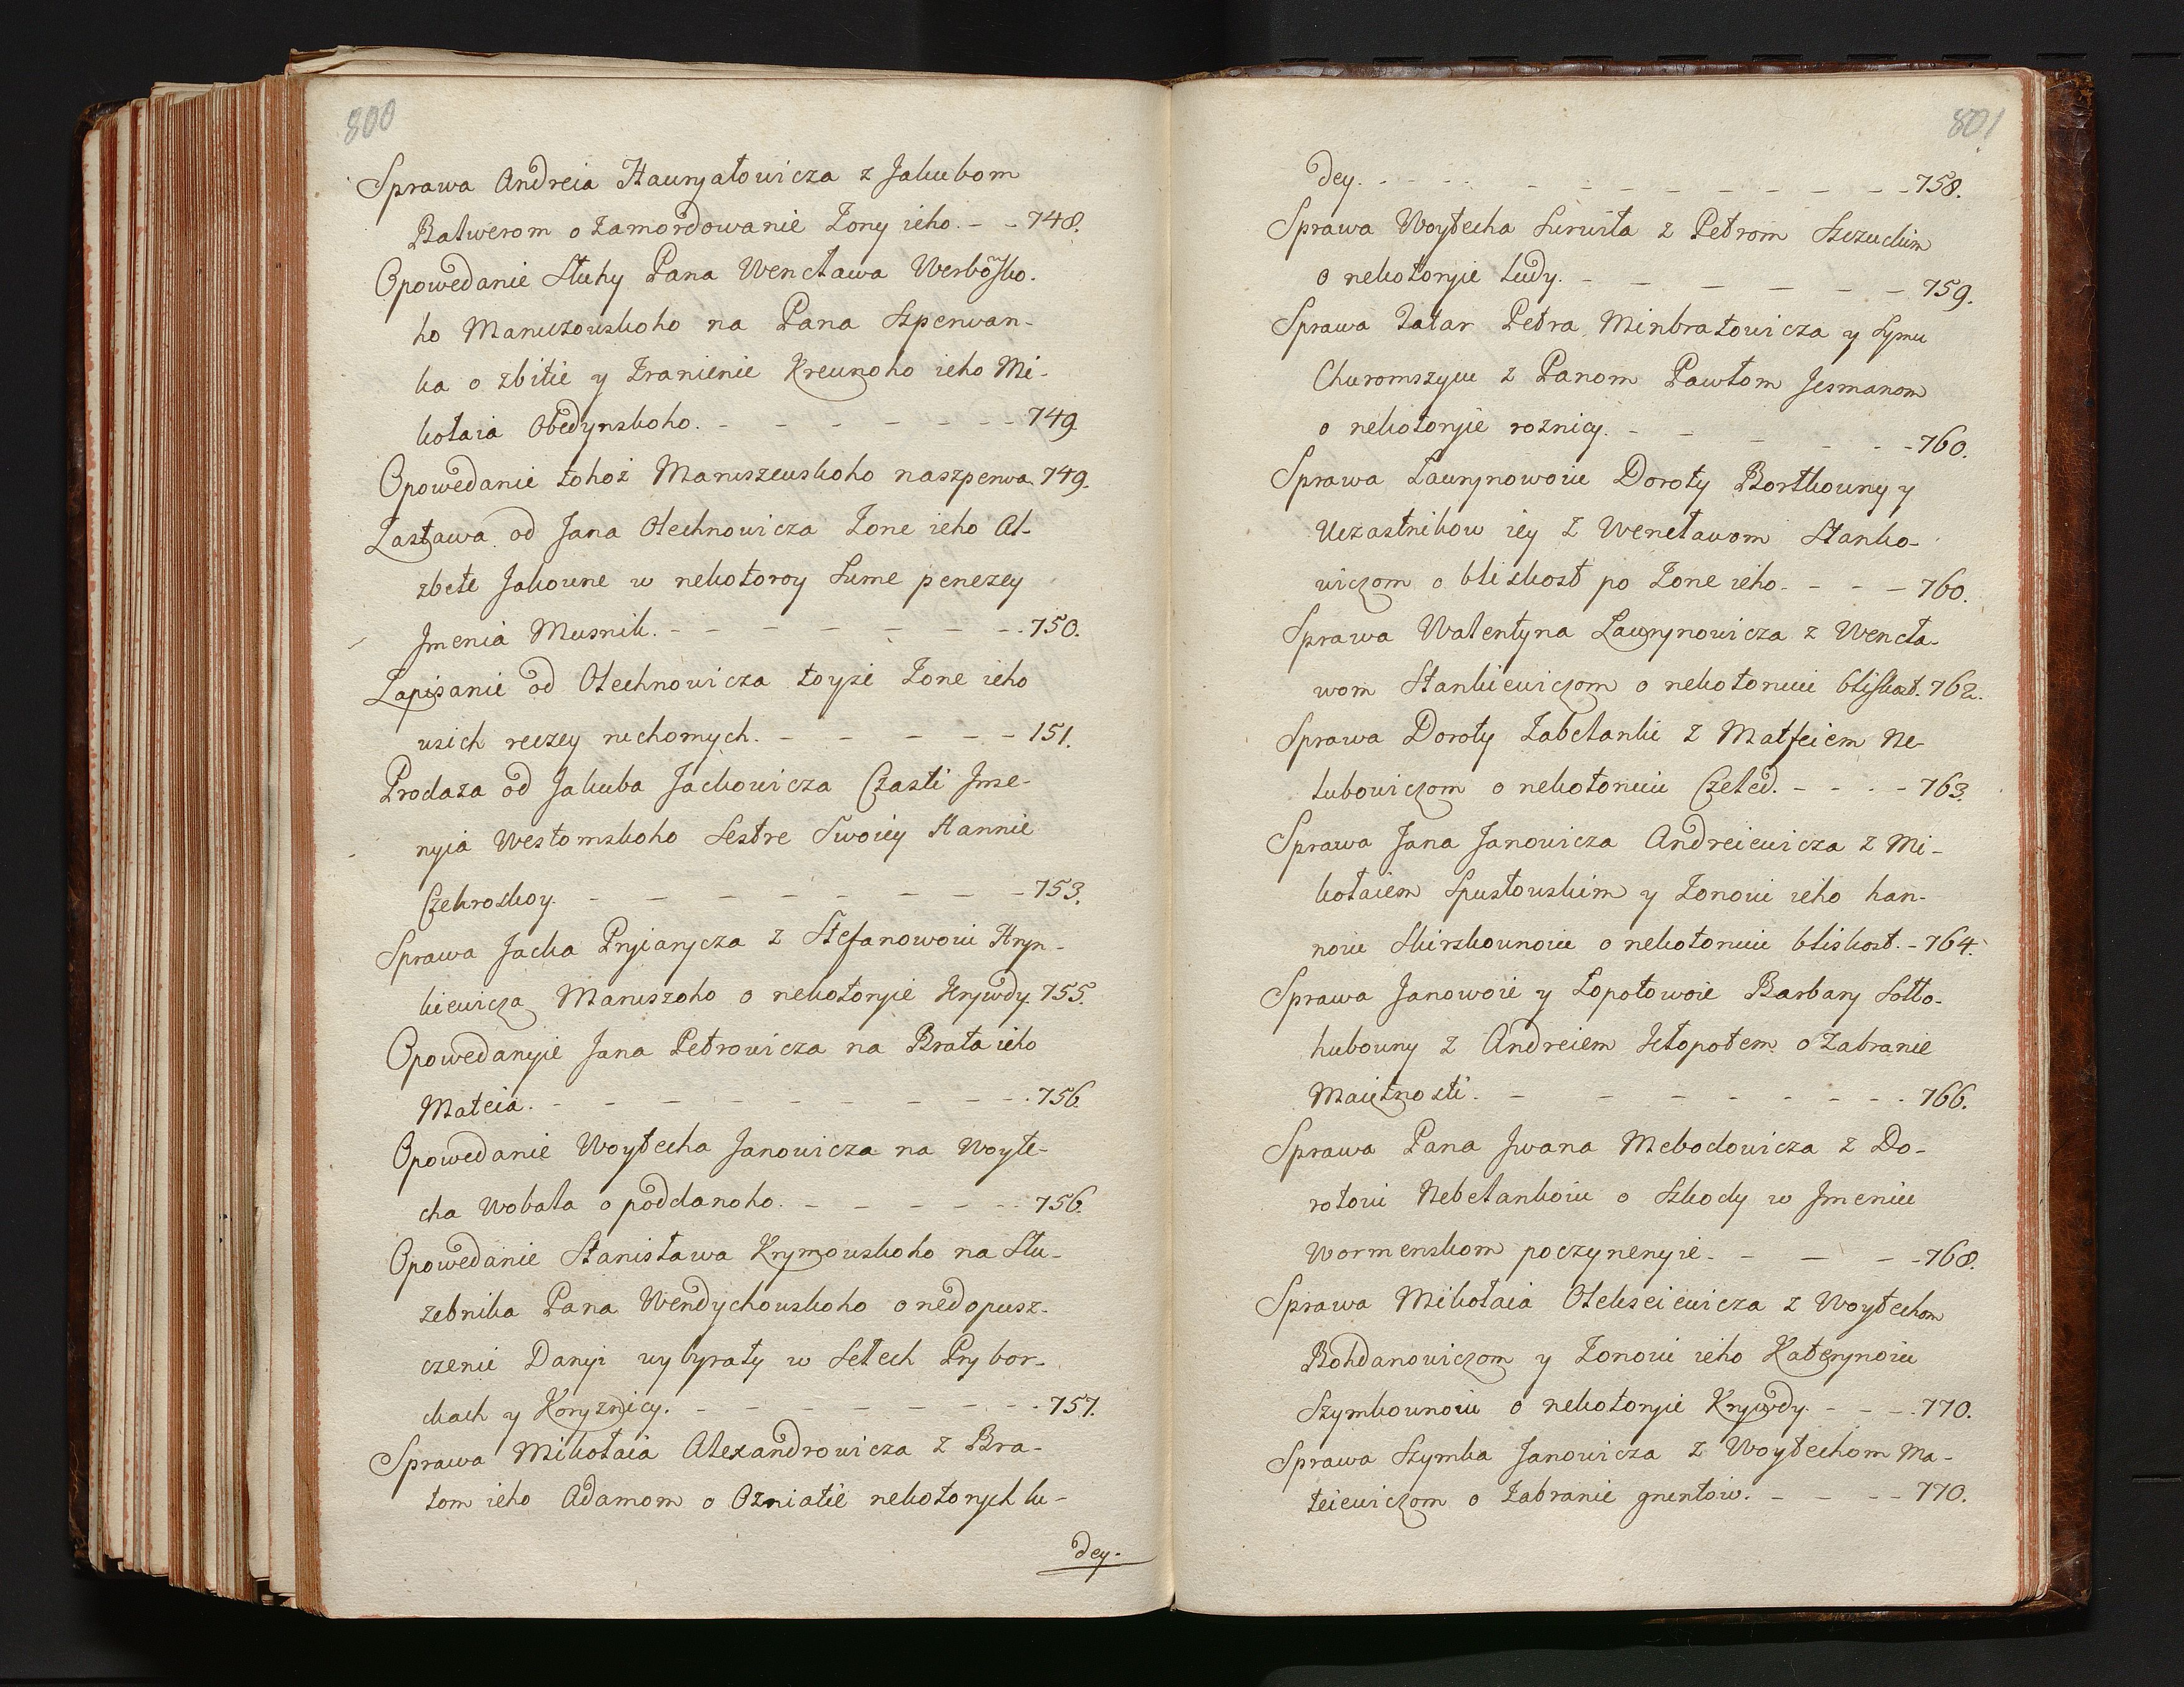 800
Sprawa Andreia Hauryałowicza z Jakubom
Balwerom o Zamordowanie Zony ieho. - - 748.
Opowedanie Sluhy Pana Wencława Werbosko-
ho Manuszouskoho na Pana Szperwan-
ka o zbitie y Zranienie Kreunoho ieho Mi-
kołaia Obedynskoho. - - - - - - - 749
Opowedanie tohoż Maniszeuskoho na szperwa. 749.
Zastawa od Jana Olechnowicza Zone ieho Al-
zbete Jakoune w nekotoroy Sume penezey
Jmenia Musnik. - - - - - - - 750.
Zapisanie od Olechnowicza toyże Zone ieho
usich reczey ruchomych. - - - - - 151.
Prodaza od Jakuba Jackowicza Czasti Jme-
nyia Westomskoho Sestre Swoiey Hannie
Czekroskoy. - - - - - - - 753.
Sprawa Jacka Pryiarycza z Stefanowoiu Hryn-
kiewicza Maruszoho o nekotoryie Krywdy. 755.
Opowedanyie Jana Petrowicza na Brata ieho
Mateia. - - - - - - - - - 756.
Opowedanie Woytecha Janowicza na Woyte-
cha Wobała o poddanoho. - - - - - 756.
Opowedanie Stanisława Krymouskoho na Słu-
żebnika Pana Wendychouskoho o nedopusz-
czenie Danyi wybyraty w Selech Prybor-
ckach y Koryznicy. - - - - - - - 757.
Sprawa Mikołaia Alexandrowicza z Bra-
tom ieho Adamom o Ozniatie nekotorych lu-
dey.
801
dey. - - - - - - - - - - - 758.
Sprawa Woytecha Surwiła z Petrom Szczuckim
o nekotoryie Ludy. - - - - - - 759.
Sprawa Tatar Petra Minbratowicza y Synu
Churomszyiu z Panom Pawłom Jesmanom
o nekotoryie roznicy. - - - - - 760.
Sprawa Laurynowoiu Doroty Bortkouny y
Uczastnikow iey z Wencławom Stanko-
wiczom o bliskost po Zone ieho. - - - 760.
Sprawa Walentyna Lawrynowicza z Wencła-
wom Stankiewiczom o nekotoruiu bliskost. 762.
Sprawa Doroty Zabelanki z Matfeiem Ne-
lubowiczom o nekotoruiu Czeled. - - - - 763.
Sprawa Jana Janowicza Andreiewicza z Mi-
kołaiem Spustouskim y Zonoiu ieho han-
noiu Skirskounoiu o nekotoruiu bliskost. - 764.
Sprawa Janowoie y Łopotowoie Barbary Sołło-
hubouny z Andreiem Sełopotem o Zabranie
Maiętnosti. - - - - - - - 766.
Sprawa Pana Jwana Mebodowicza z Do-
rotoiu Nebelankoiu o Szkody w Jmeniu
Wormenskom poczynenyie. - - - - 768.
Sprawa Mikołaia Olekseiewicza z Woytechom
Bohdanowiczom y Zonoiu ieho Katerynoiu
Szymkounoiu o nekotoryie Krywdy. - - - 770.
Sprawa Szymka Janowicza z Woytechom Ma-
teiewiczom o Zabranie gruntow. - - - - 770.